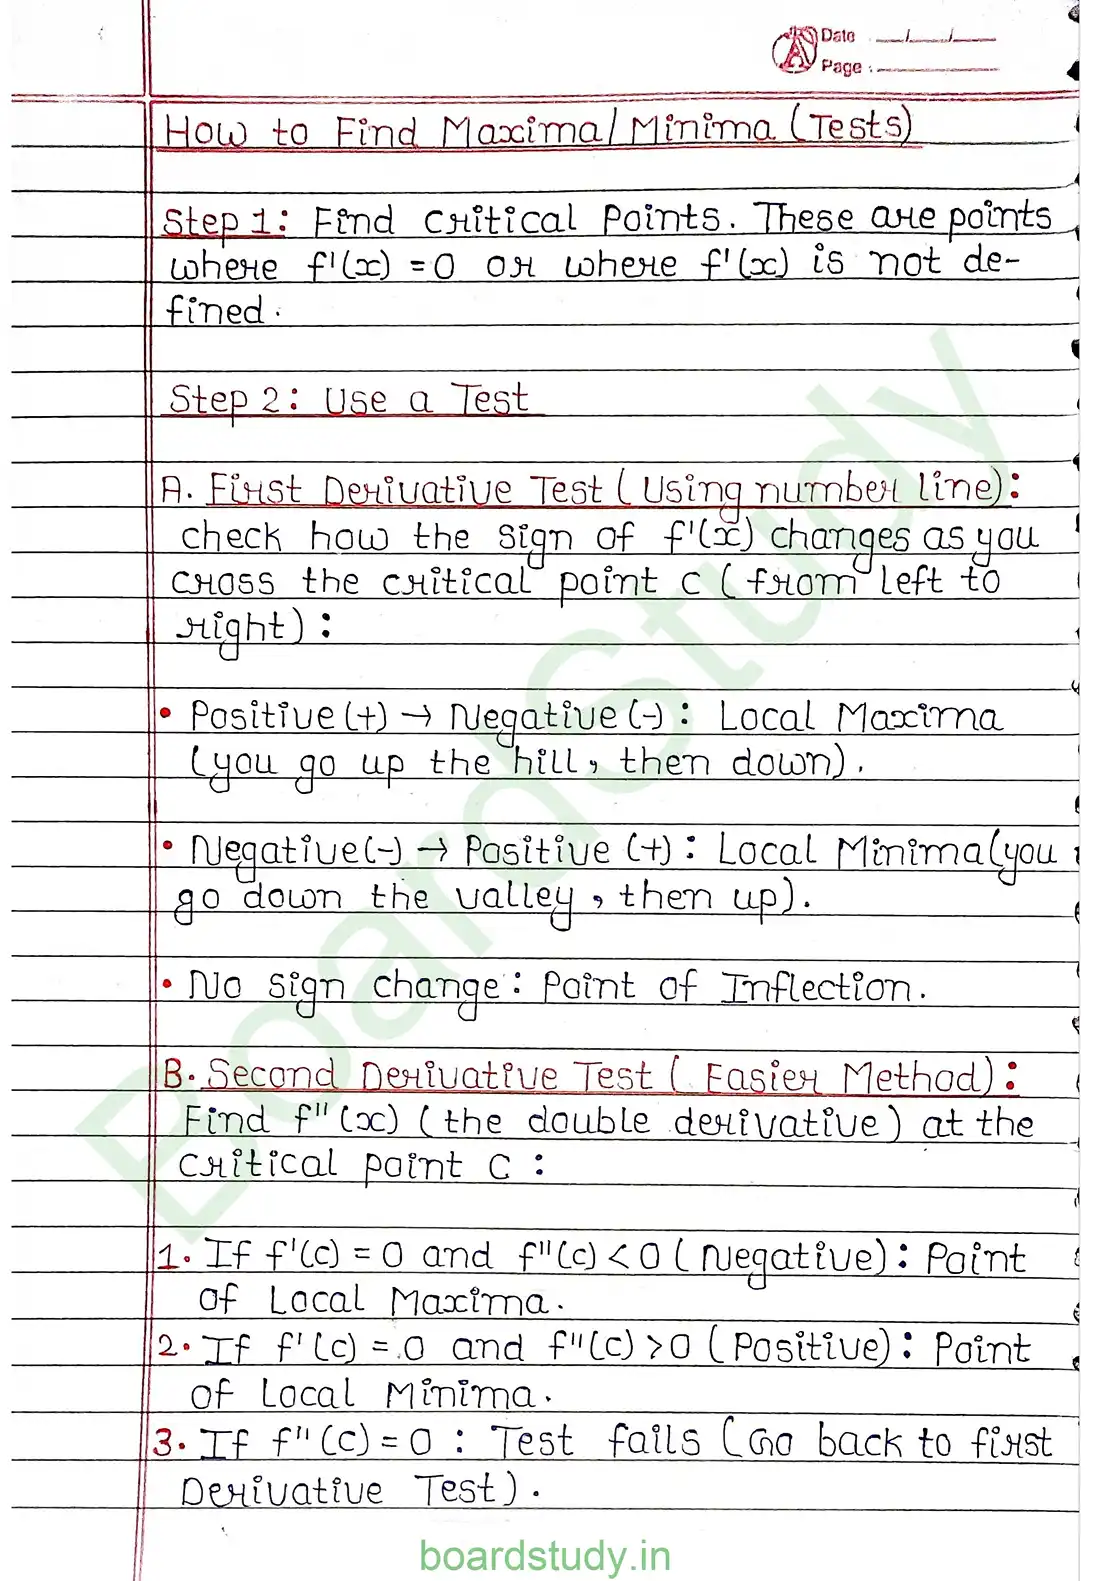 Date __/__/__
Page : ______
How to Find Maxima/Minima (Tests)
Step 1: Find Critical Points. These are points
where f'(x) = 0 or where f'(x) is not de-
fined.
Step 2: Use a Test
A. First Derivative Test (Using number line):
check how the sign of f'(x) changes as you
cross the critical point c (from left to
right):
• Positive (+) → Negative (-): Local Maxima
(you go up the hill, then down).
• Negative (-) → Positive (+): Local Minima (you
go down the valley, then up).
• No sign change: Point of Inflection.
B. Second Derivative Test (Easier Method):
Find f''(x) (the double derivative) at the
critical point c :
1. If f'(c) = 0 and f''(c) < 0 (Negative): Point
of Local Maxima.
2. If f'(c) = 0 and f''(c) > 0 (Positive): Point
of Local Minima.
3. If f''(c) = 0 : Test fails (Go back to first
Derivative Test).
BoardStudy
boardstudy.in